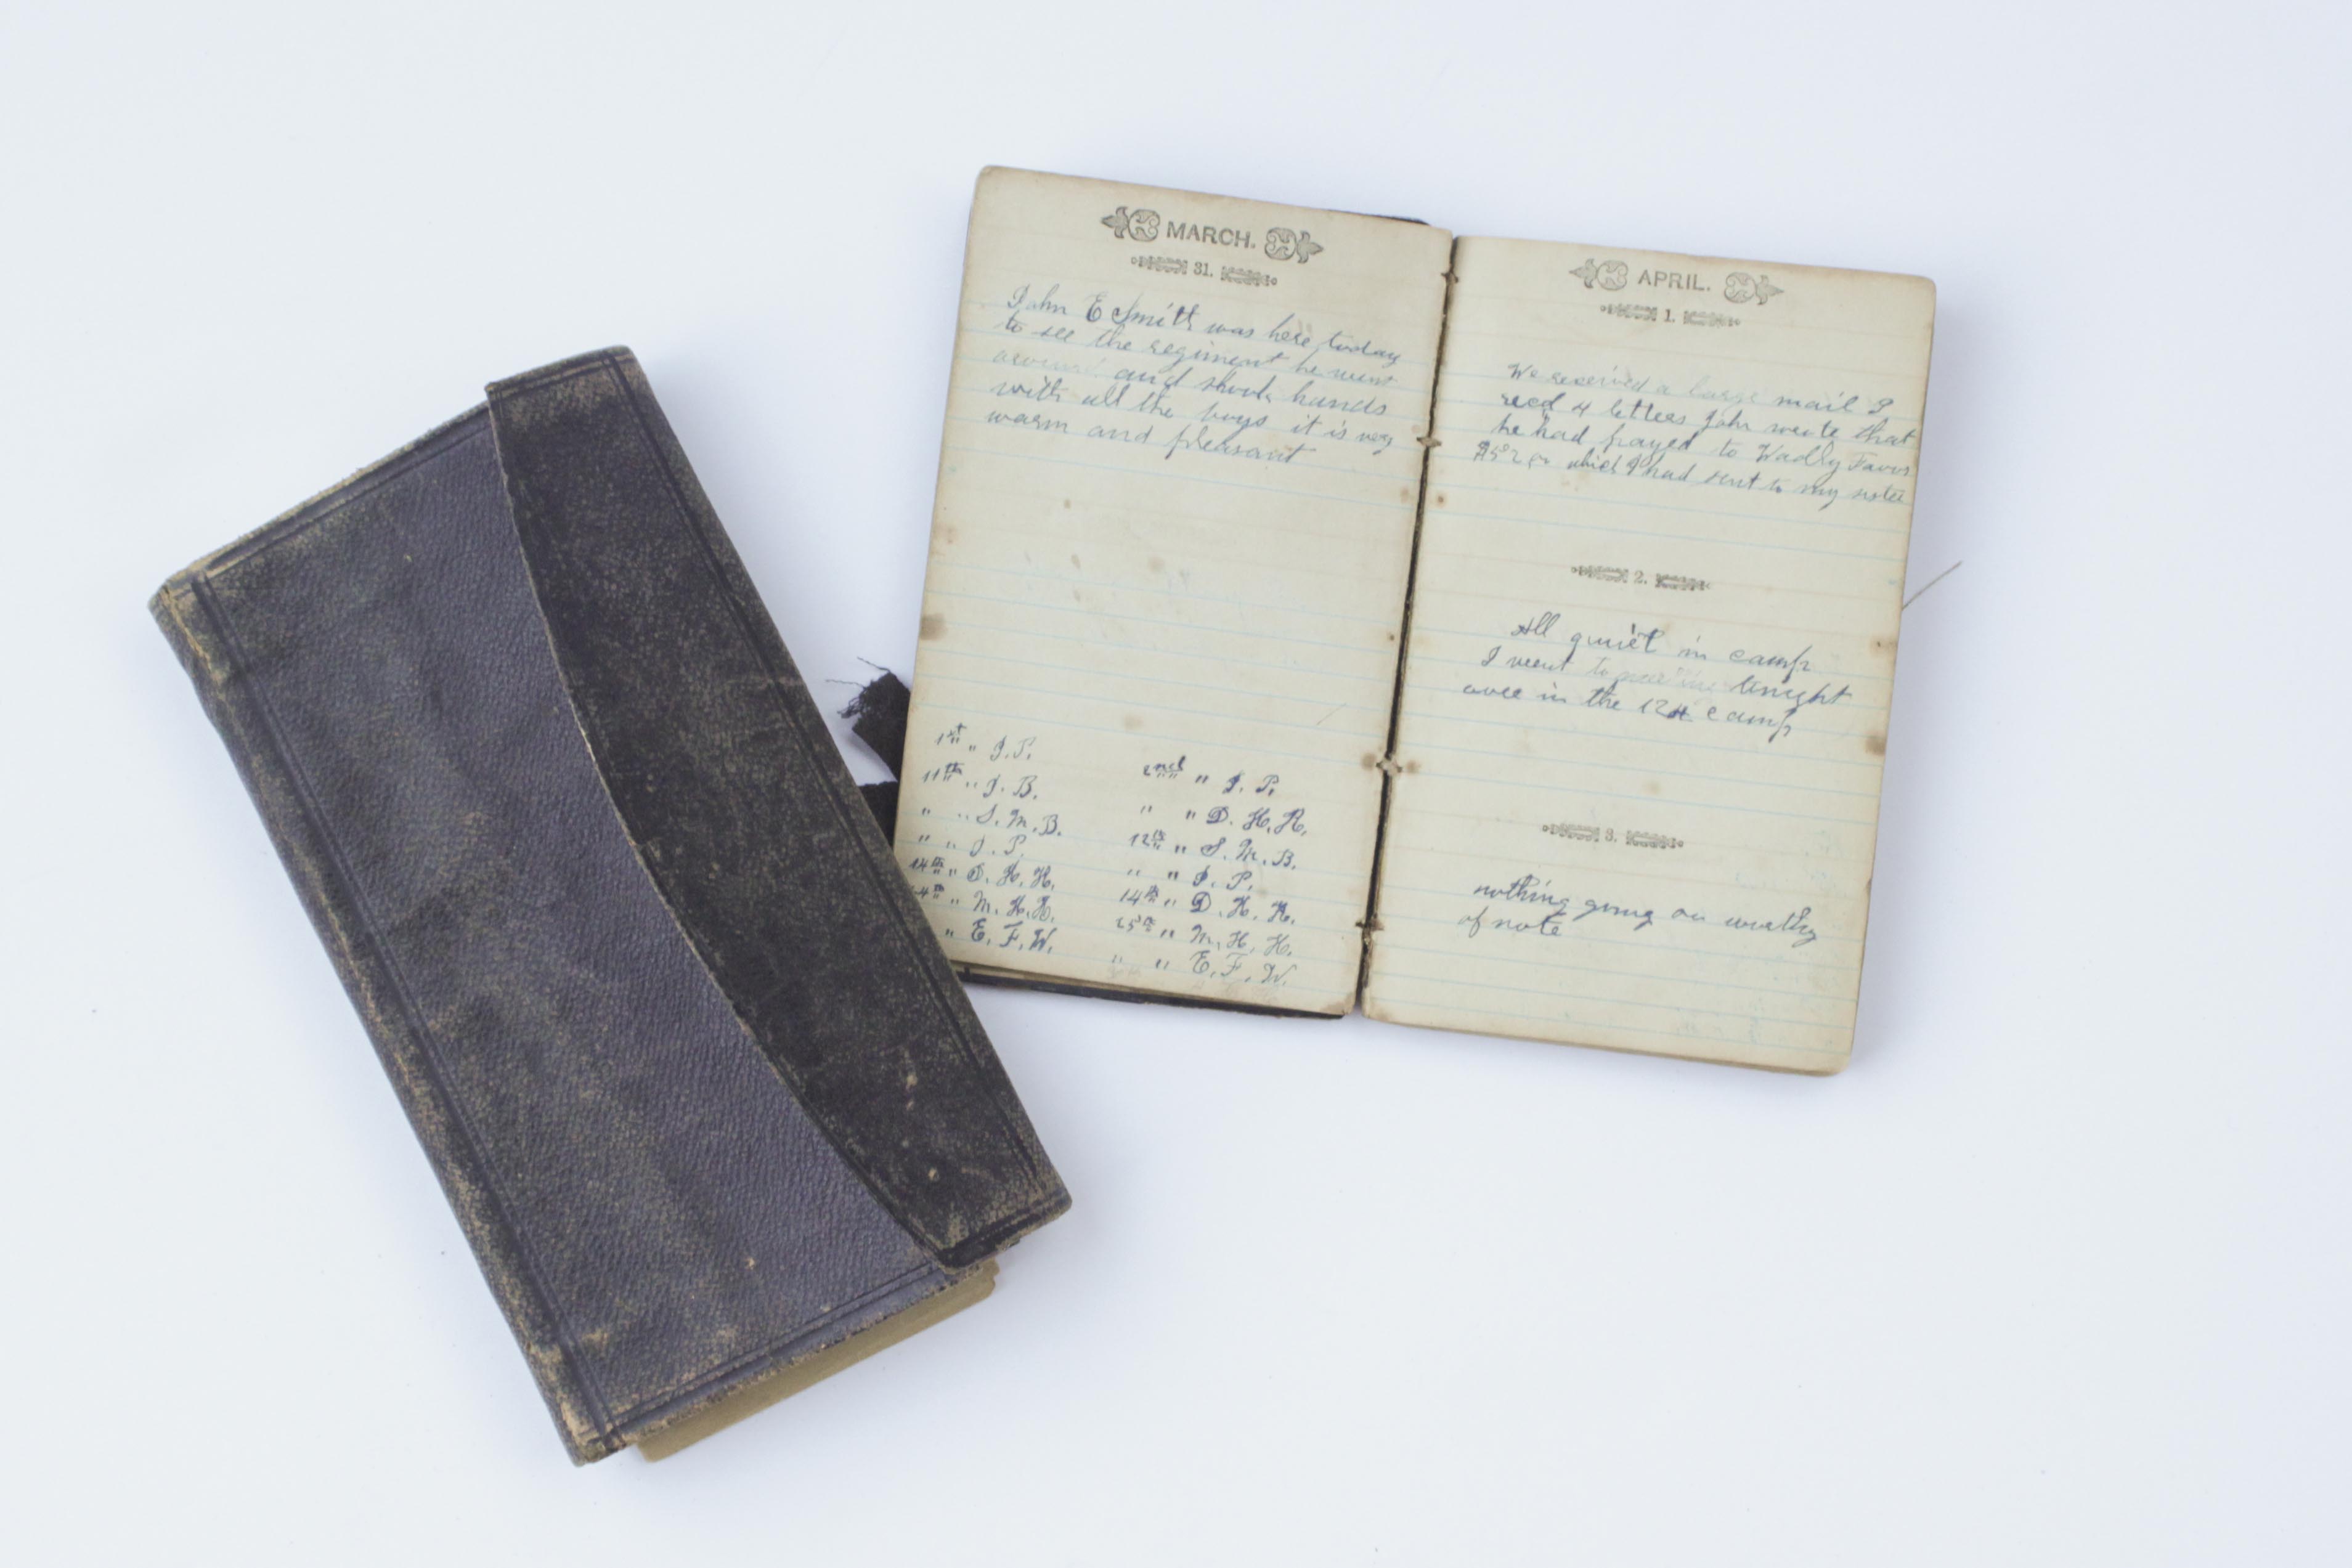 MARCH.
31.
John E Smith was here today
to see the regiment he went
around and shook hands
with all the boys it is very
warm and pleasant
1st " J. P.
11th " J. B.
" " S. M. B.
" " J. P.
14th " D. H. H.
" M. H. H.
" E. F. W.
2nd " J. P.
" " D. H. H.
12th " S. M. B.
" " J. P.
14th " D. H. H.
25th " M. H. H.
" " E. F. W.
APRIL.
1.
We received a large mail I
recd 4 letters John wrote that
he had payed to Wadly Favor
which I had sent to my
2.
All quiet in camp
I went to tonight
over in the 124 camp
3.
nothing going on worthy
of note